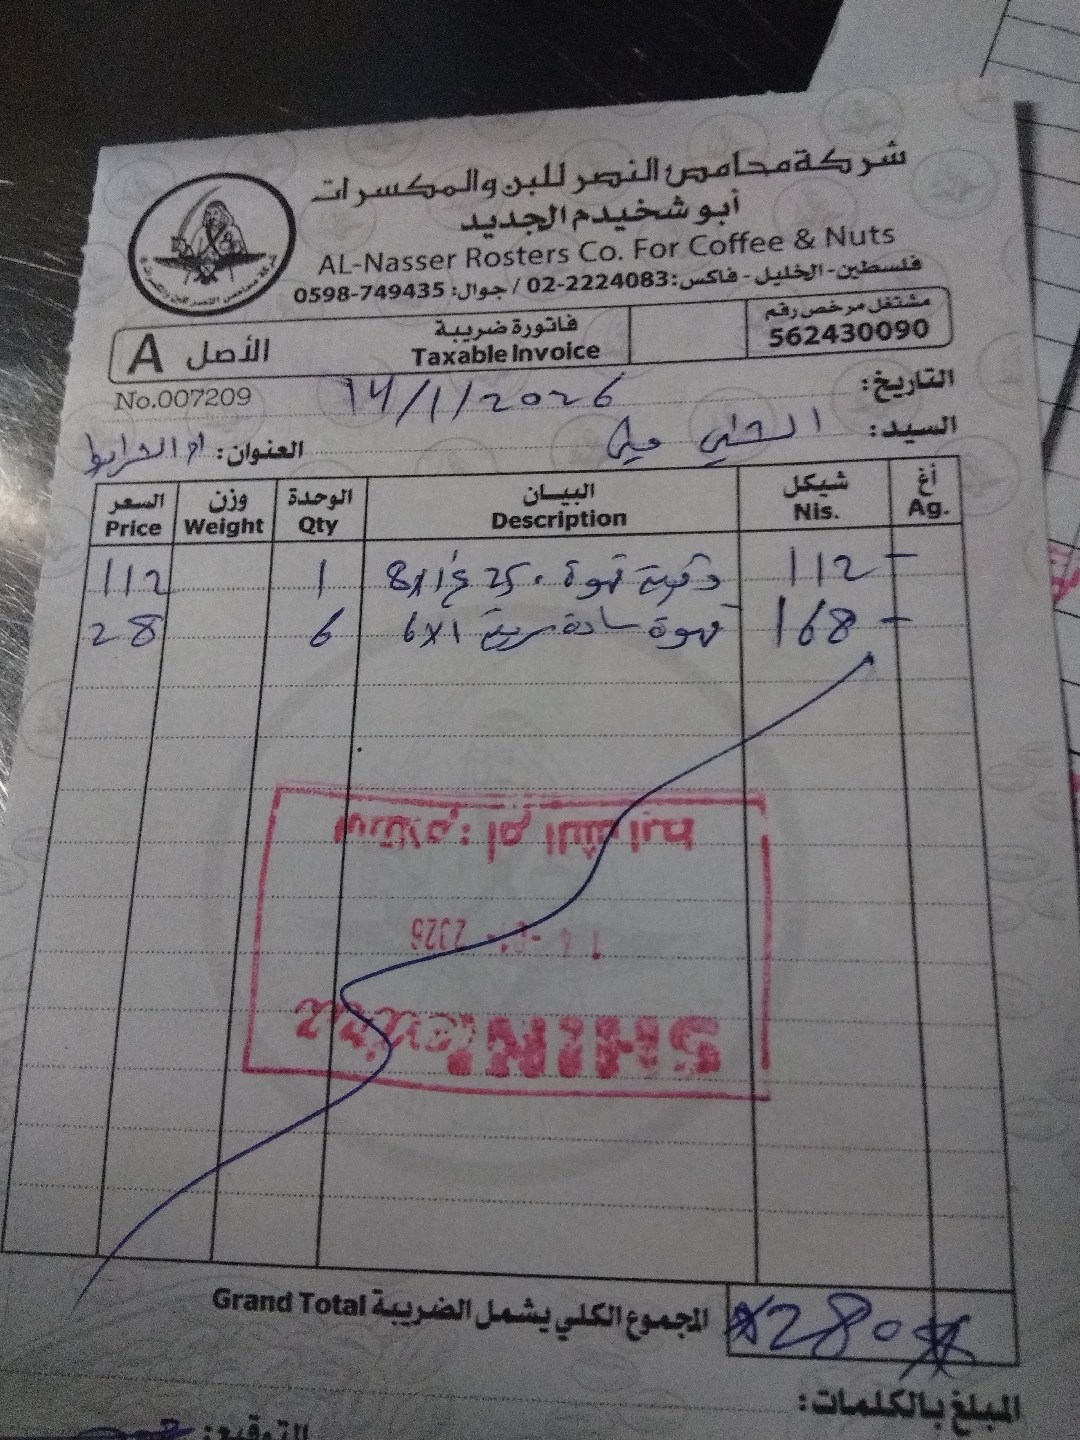 شركة محامص النصر للبن والمكسرات
أبو شخيدم الجديد
AL-Nasser Rosters Co. For Coffee & Nuts
فلسطين - الخليل - فاكس: 02-2224083 / جوال: 0598-749435
مشتغل مرخص رقم 562430090
فاتورة ضريبة
Taxable Invoice
الأصل A
No.007209
التاريخ: 14/1/2026
السيد:
العنوان: ام الشرايط
أغ شيكل البيان الوحدة وزن السعر
Ag. Nis. Description Qty Weight Price
112 وقية قهوة 250غ 8x1 1 112
168 قهوة سادة سريعة 6x1 6 28
استلام: ام الشرايط
14-01-2026
SHINI
المجموع الكلي يشمل الضريبة Grand Total 280
المبلغ بالكلمات:
التوقيع: